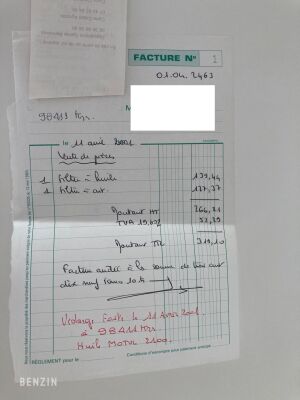 FACTURE N° 1
01.04. 2463
M
98411 Km.
le 11 avril 2001
Vente de pièces
1 Filtre à huile 139,44
1 Filtre à air 127,37
Montant HT 266,81
TVA 19,60% 52,29
Montant TTC 319,10
Facture arrêtée à la somme de trois cent
dix neuf francs 10 cts
Vidange Faite le 11 Avril 2001
à 98411 Km
Huile MOTUL 2100.
RÈGLEMENT pour le
Conditions d'escompte pour paiement anticipé
BENZIN